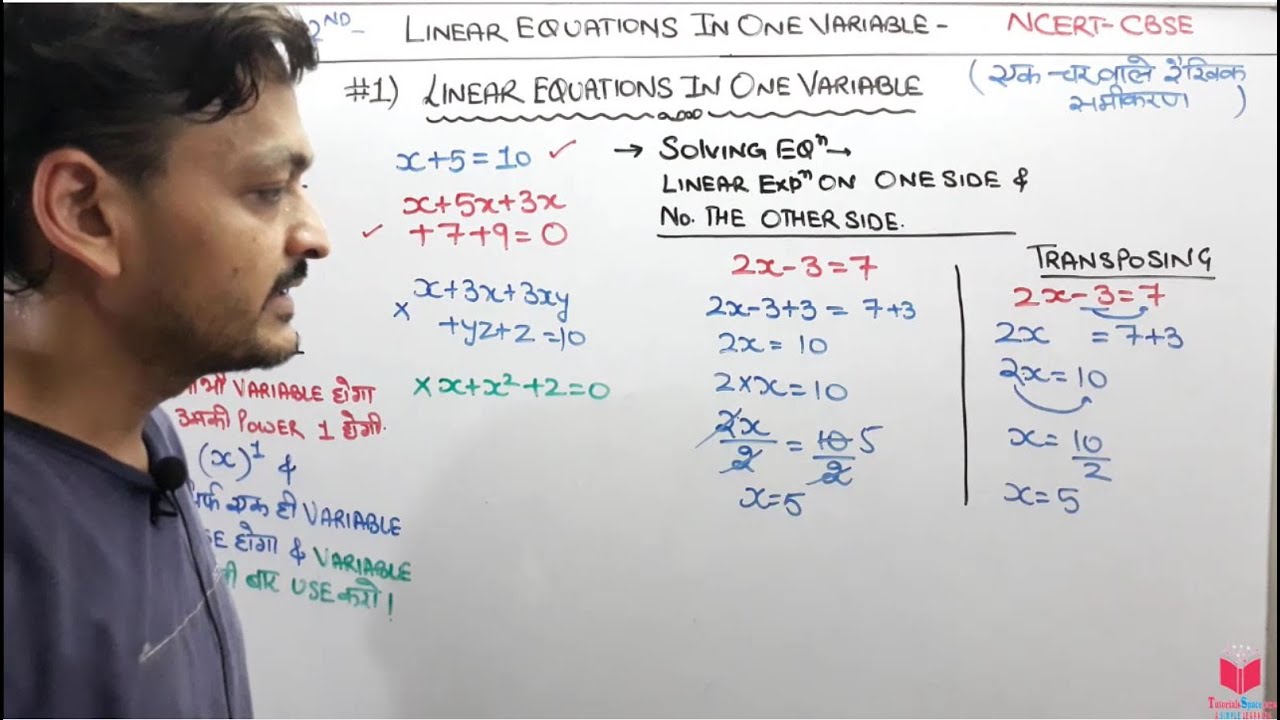 2ND- LINEAR EQUATIONS IN ONE VARIABLE - NCERT-CBSE
#1) LINEAR EQUATIONS IN ONE VARIABLE
(एक चर वाले रैखिक
समीकरण)
x+5=10 ✓
x+5x+3x
✓ +7+9=0
× x+3x+3xy
+yz+z=10
× x+x²+2=0
VARIABLE होगा
उसकी POWER 1 होगी.
(x)¹ &
एक ही VARIABLE
होगा & VARIABLE
बार USE करो!
→ SOLVING EQⁿ→
LINEAR EXPⁿ ON ONE SIDE &
NO. THE OTHER SIDE.
2x-3=7
2x-3+3 = 7+3
2x = 10
2×x=10
2x/2 = 10/2 5
x=5
TRANSPOSING
2x-3=7
2x = 7+3
2x=10
x=10/2
x=5
TutorialsSpace